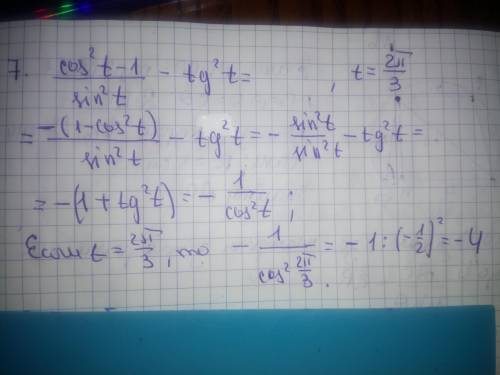 7. (cos²t-1)/(sin²t) - tg²t= , t=2π/3
= (-(1-cos²t))/(sin²t) - tg²t= - sin²t/sin²t - tg²t=
= -(1+tg²t)= - 1/cos²t ;
Если t=2π/3, то - 1/(cos² 2π/3) = -1:(-1/2)²=-4